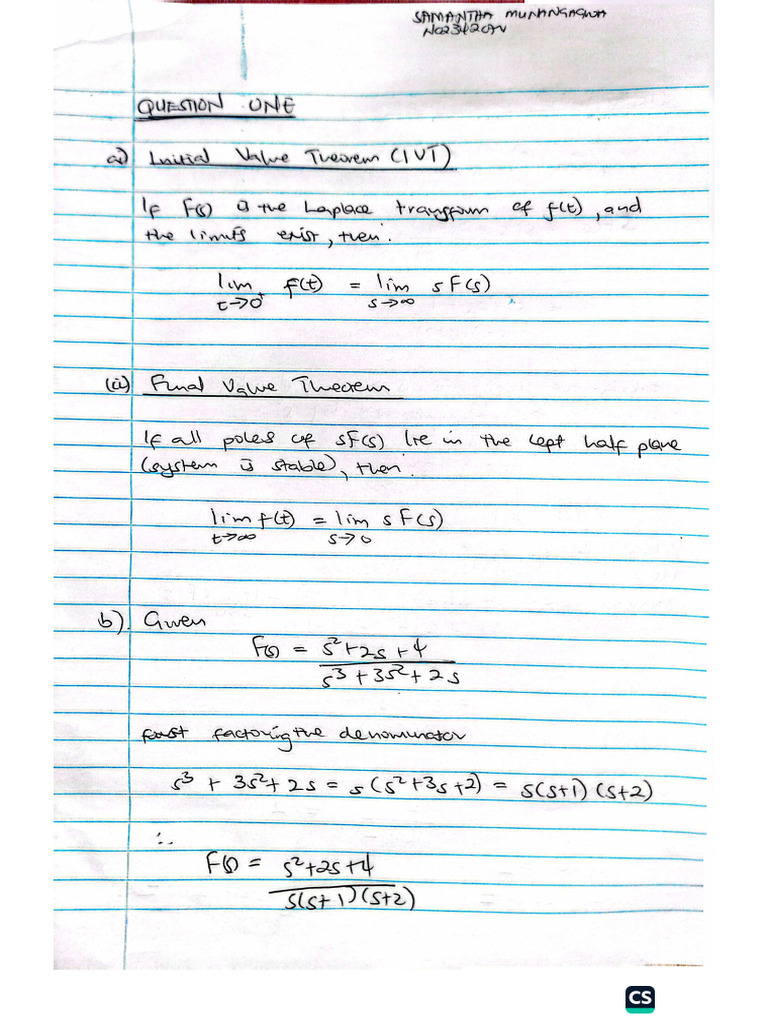 SAMANTHA MUNANGAGWA
QUESTION ONE
a) Initial Value Theorem (IVT)
If F(s) is the Laplace transform of f(t), and
the limits exist, then.
lim f(t) = lim sF(s)
t→0⁺ s→∞
(ii) Final Value Theorem
If all poles of sF(s) lie in the left half plane
(system is stable), then.
lim f(t) = lim sF(s)
t→∞ s→0
b). Given
F(s) = s²+2s+4
s³+3s²+2s
first factoring the denominator
s³ + 3s²+2s = s(s²+3s+2) = s(s+1)(s+2)
∴
F(s) = s²+2s+4
s(s+1)(s+2)
CS